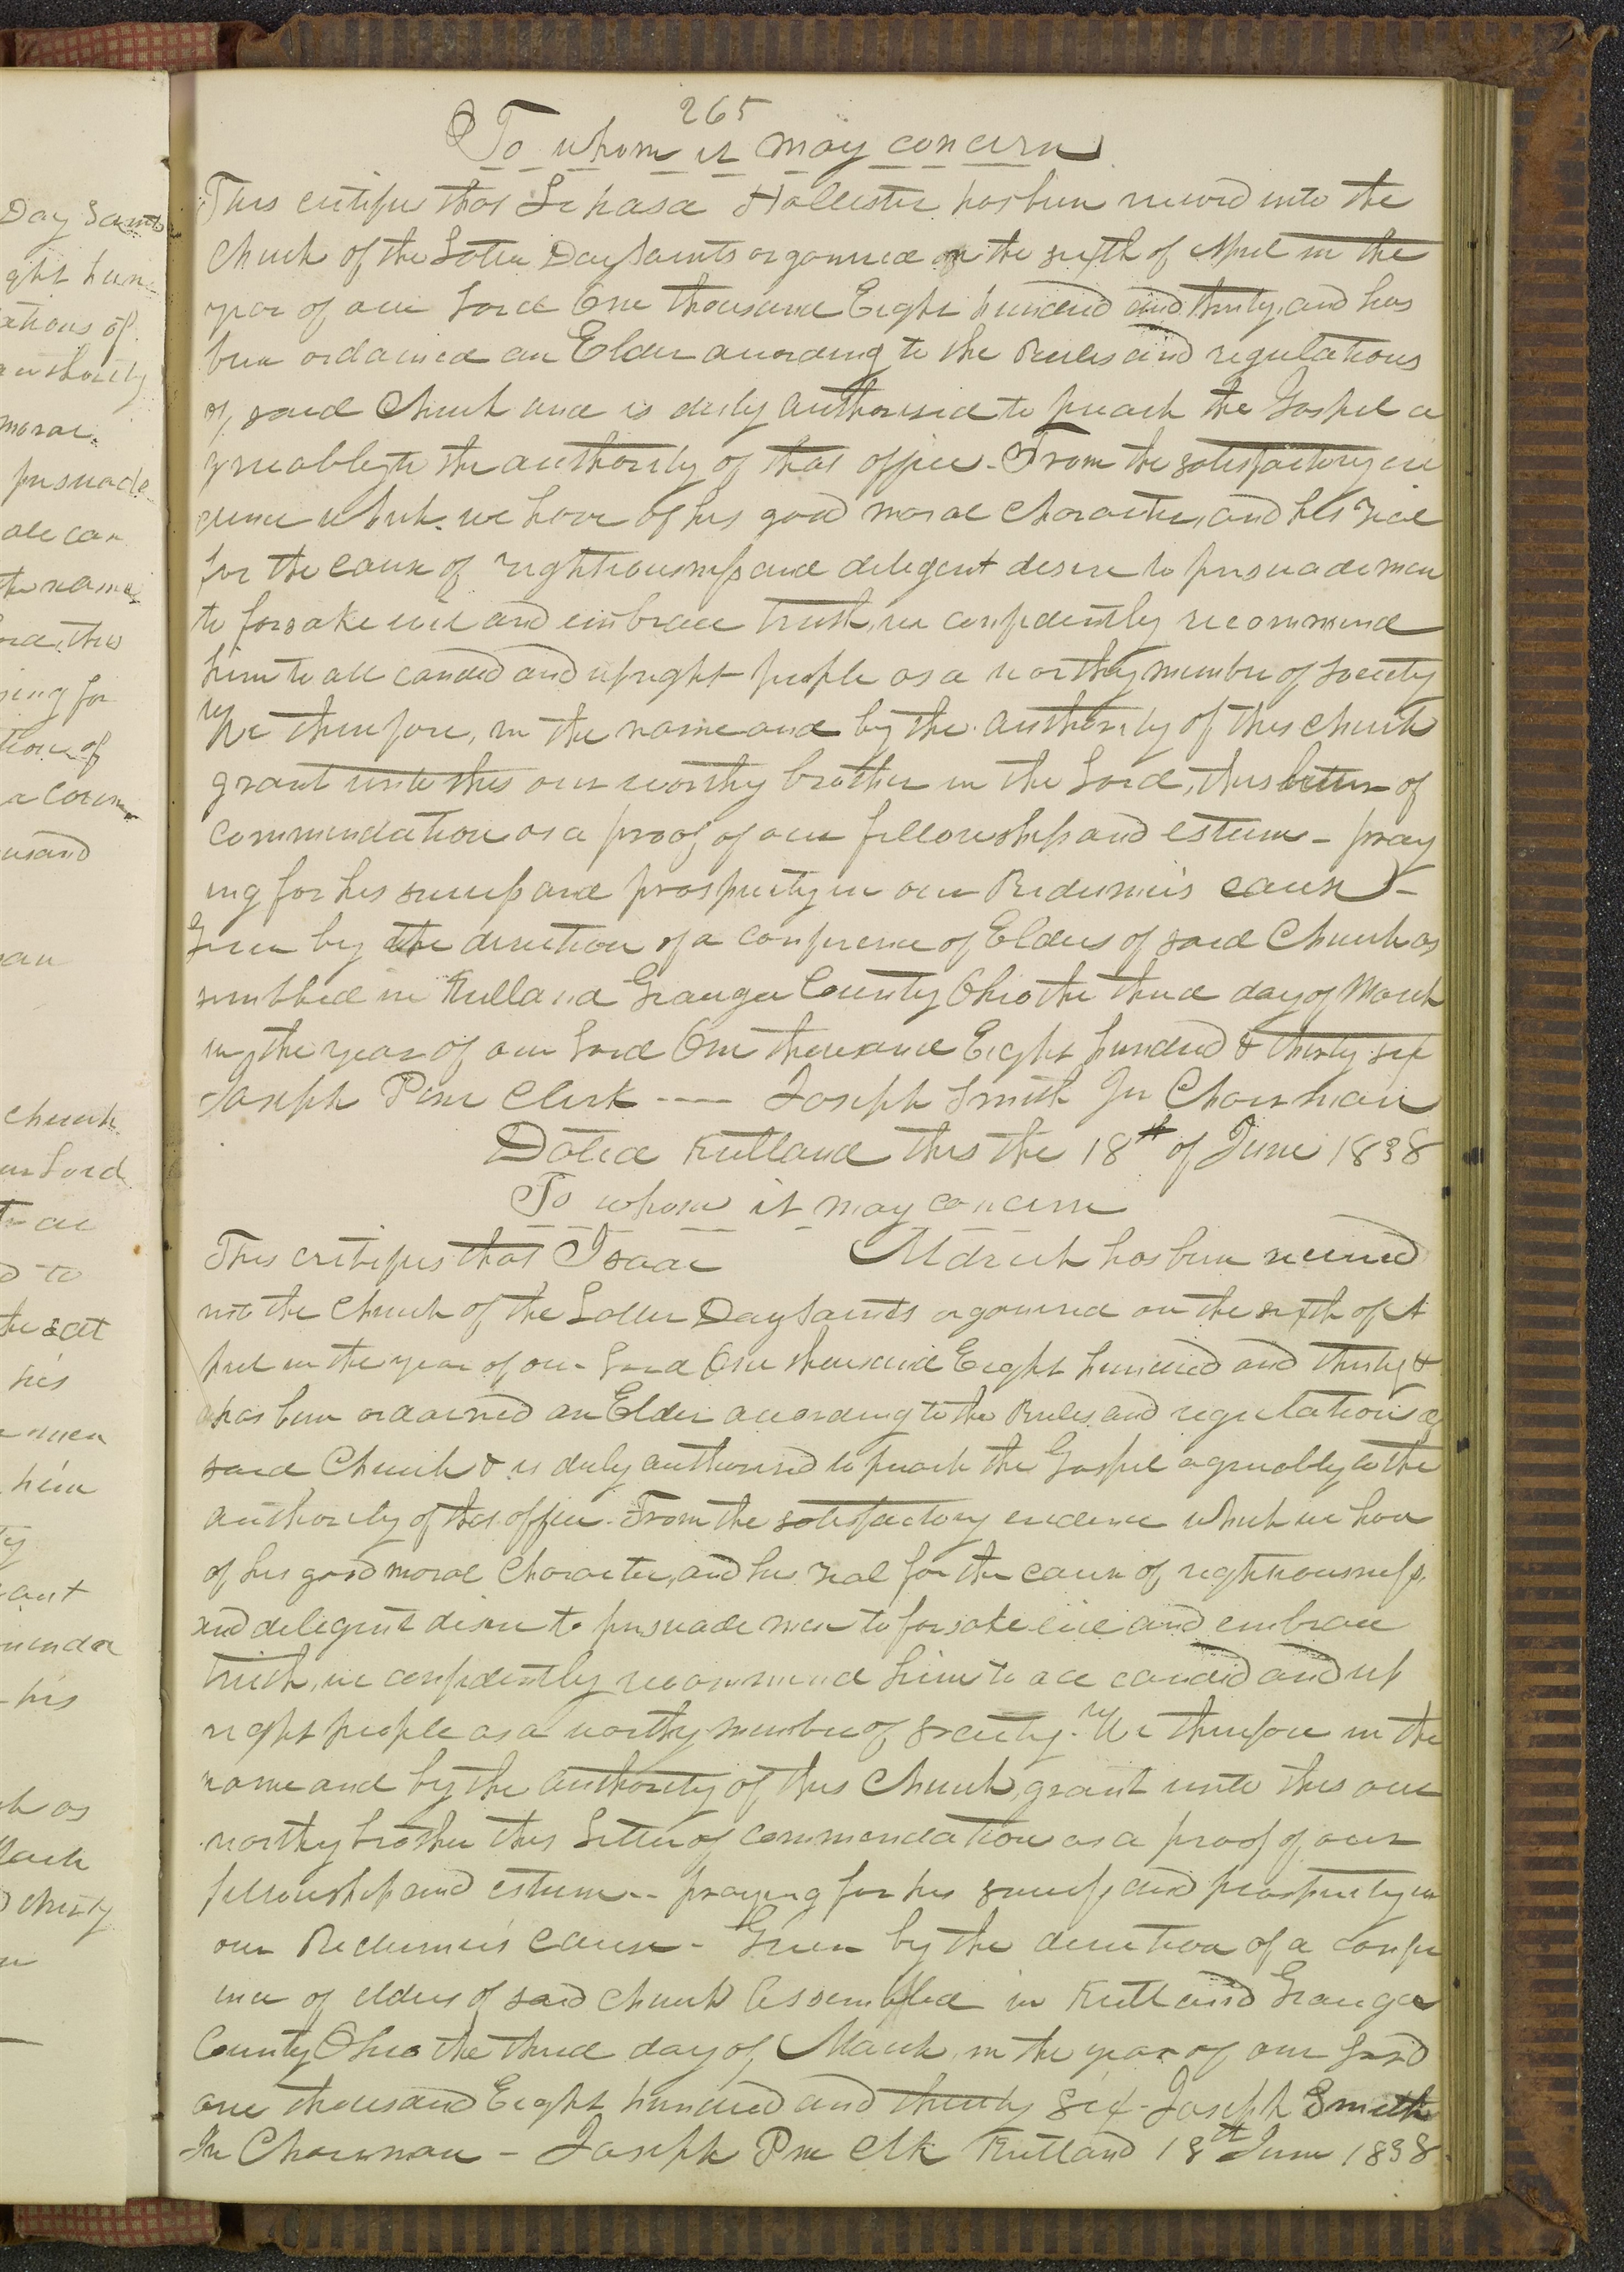 265
To whom it may concern
This certifies that Hollister has been received into the
Church of the Latter Day Saints organized on the sixth of April in the
year of our Lord One thousand Eight hundred and thirty, and has
been ordained an Elder according to the Rules and regulations
of said Church and is duly authorised to preach the Gospel a
greeably to the authority of that office. From the satisfactory evi
dence which we have of his good moral character, and his zeal
for the cause of righteousness and deligent desire to persuade men
to forsake evil and embrace truth, we confidently recommend
him to all candid and upright people as a worthy member of society
We therefore, in the name and by the authority of this church
grant unto this our worthy brother in the Lord, this letter of
commendation as a proof of our fellowship and esteem - pray
ing for his success and prosperity in our Redeemer's cause -
Given by the direction of a conference of Elders of said Church as
sembled in Kirtland Geauga County Ohio the third day of March
in the year of our Lord One thousand Eight hundred & thirty six
Joseph Clerk ---- Joseph Smith Jr Chairman
Dated Kirtland this the 18th of June 1838
To whom it may concern
This certifies that Isaac Aldrich has been received
into the Church of the Latter Day Saints organized on the sixth of A
pril in the year of our Lord One thousand Eight hundred and thirty &
has been ordained an Elder according to the Rules and regulations of
said Church & is duly authorised to preach the Gospel agreeably to the
authority of that office. From the satisfactory evidence which we have
of his good moral Character, and his zeal for the cause of righteousness,
and deligent desire to persuade men to forsake evil and embrace
truth, we confidently recommend him to all candid and up
right people as a worthy member of society. We therefore in the
name and by the authority of this Church, grant unto this our
worthy brother this Letter of commendation as a proof of our
fellowship and esteem -- praying for his success and prosperity in
our Redeemer's cause - Given by the direction of a confer
ence of elders of said church Assembled in Kirtland Geauga
County Ohio the third day of March, in the year of our Lord
one thousand Eight hundred and thirty six - Joseph Smith
Jr Chairman - Joseph Clk Kirtland 18th June 1838
Day Saints
ght hun
ations of
authority
moral
persuade
all can
the name
ord, this
ying for
tion of
a coun
usand
an
church
our Lord
to all
d to
the sat
his
men
him
ty
ant
menda
his
ch as
March
d thirty